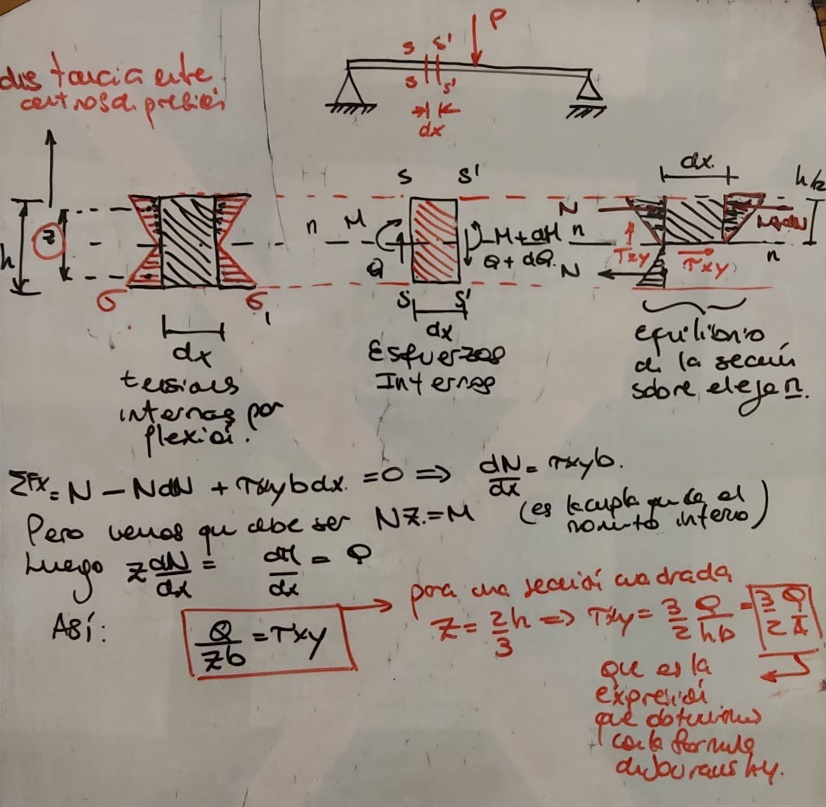 P
S S'
S S'
dx
distancia entre
centros de presión
h
z
σ σ
dx
tensiones
internas por
flexión.
S S'
n M
Q
M + dM
Q + dQ
S S'
dx
Esfuerzos
Internos
dx
h/2
N
N+dN
τxy
n
n
N
τxy
equilibrio
de la sección
sobre el eje n.
ΣFx = N - NdN + τxy b dx = 0 => dN/dx = τxy b.
Pero vemos que debe ser NZ = M (es la cupla que da el
momento interno)
Luego z dN/dx = dM/dx = Q
Así: Q/zb = τxy
para una sección cuadrada
Z = 2h/3 => τxy = 3/2 Q/hb = 3/2 Q/A
que es la
expresión
que obtuvimos
con la formula